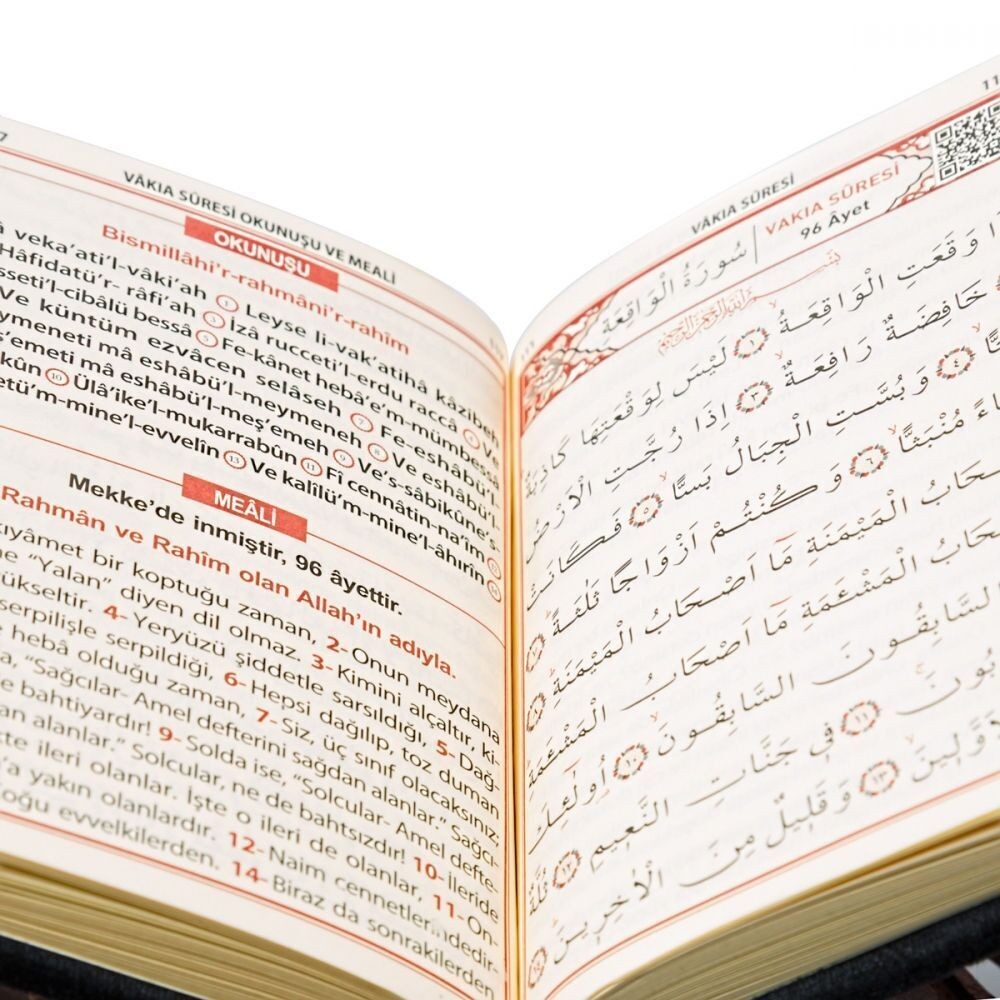 VÂKIA SÛRESİ OKUNUŞU VE MEALİ
OKUNUŞU
Bismillâhi'r-rahmâni'r-rahîm
veka'ati'l-vâki'ah ① Leyse li-vak'atihâ kâzibeh
Hâfidatü'r- râfi'ah ③ İzâ rucceti'l-erdu raccâ ④ Ve
sseti'l-cibâlü bessâ ⑤ Fe-kânet hebâ'e'm-mümbessâ
Ve küntüm ezvâcen selâseh ⑦ Fe-eshâbü'l-
ymeneti mâ eshâbü'l-meymeneh ⑧ Ve eshâbü'l-
ş'emeti mâ eshâbü'l-meş'emeh ⑨ Ve's-sâbikûne's-
kûn ⑩ Ülâ'ike'l-mukarrabûn ⑪ Fî cennâtin-na'îm ⑫
etü'm-mine'l-evvelîn ⑬ Ve kalîlü'm-mine'l-âhırîn ⑭
MEÂLİ
Mekke'de inmiştir, 96 âyettir.
Rahmân ve Rahîm olan Allah'ın adıyla.
kıyâmet bir koptuğu zaman, 2- Onun meydana
ne "Yalan" diyen dil olmaz. 3- Kimini alçaltır, ki-
ükseltir. 4- Yeryüzü şiddetle sarsıldığı, 5- Dağ-
serpilişle serpildiği, 6- Hepsi dağılıp, toz duman
heba olduğu zaman, 7- Siz, üç sınıf olacaksınız;
a, "Sağcılar- Amel defterini sağdan alanlar." Sağcı-
e bahtiyardır! 9- Solda ise, "Solcular- Amel defte-
an alanlar." Solcular, ne de bahtsızdır! 10- İleride
şte ileri olanlar. İşte o ileri de olanlar, 11- On-
'a yakın olanlardır. 12- Naim cennetlerindedir-
Çoğu evvelkilerden. 14- Biraz da sonrakilerden
VÂKIA SÛRESİ
VAKIA SÛRESİ
96 Âyet
سُورَةُ الْوَاقِعَةِ
بِسْمِ اللهِ الرَّحْمٰنِ الرَّحِيمِ
وَقَعَتِ الْوَاقِعَةُ ١ لَيْسَ لِوَقْعَتِهَا كَاذِبَةٌ
خَافِضَةٌ رَافِعَةٌ ٣ اِذَا رُجَّتِ الْاَرْضُ
٤ وَبُسَّتِ الْجِبَالُ بَسًّا ٥ فَكَانَتْ
مُنْبَثًّا ٦ وَكُنْتُمْ اَزْوَاجًا ثَلٰثَةً ٧
الْمَيْمَنَةِ مَٓا اَصْحَابُ الْمَيْمَنَةِ ٨
الْمَشْـَٔمَةِ مَٓا اَصْحَابُ الْمَشْـَٔمَةِ
السَّابِقُونَ السَّابِقُونَ ١٠ اُولٰٓئِكَ
١١ فِي جَنَّاتِ النَّعِيمِ ١٢ ثُلَّةٌ
١٣ وَقَلِيلٌ مِنَ الْاٰخِرِينَ ١٤